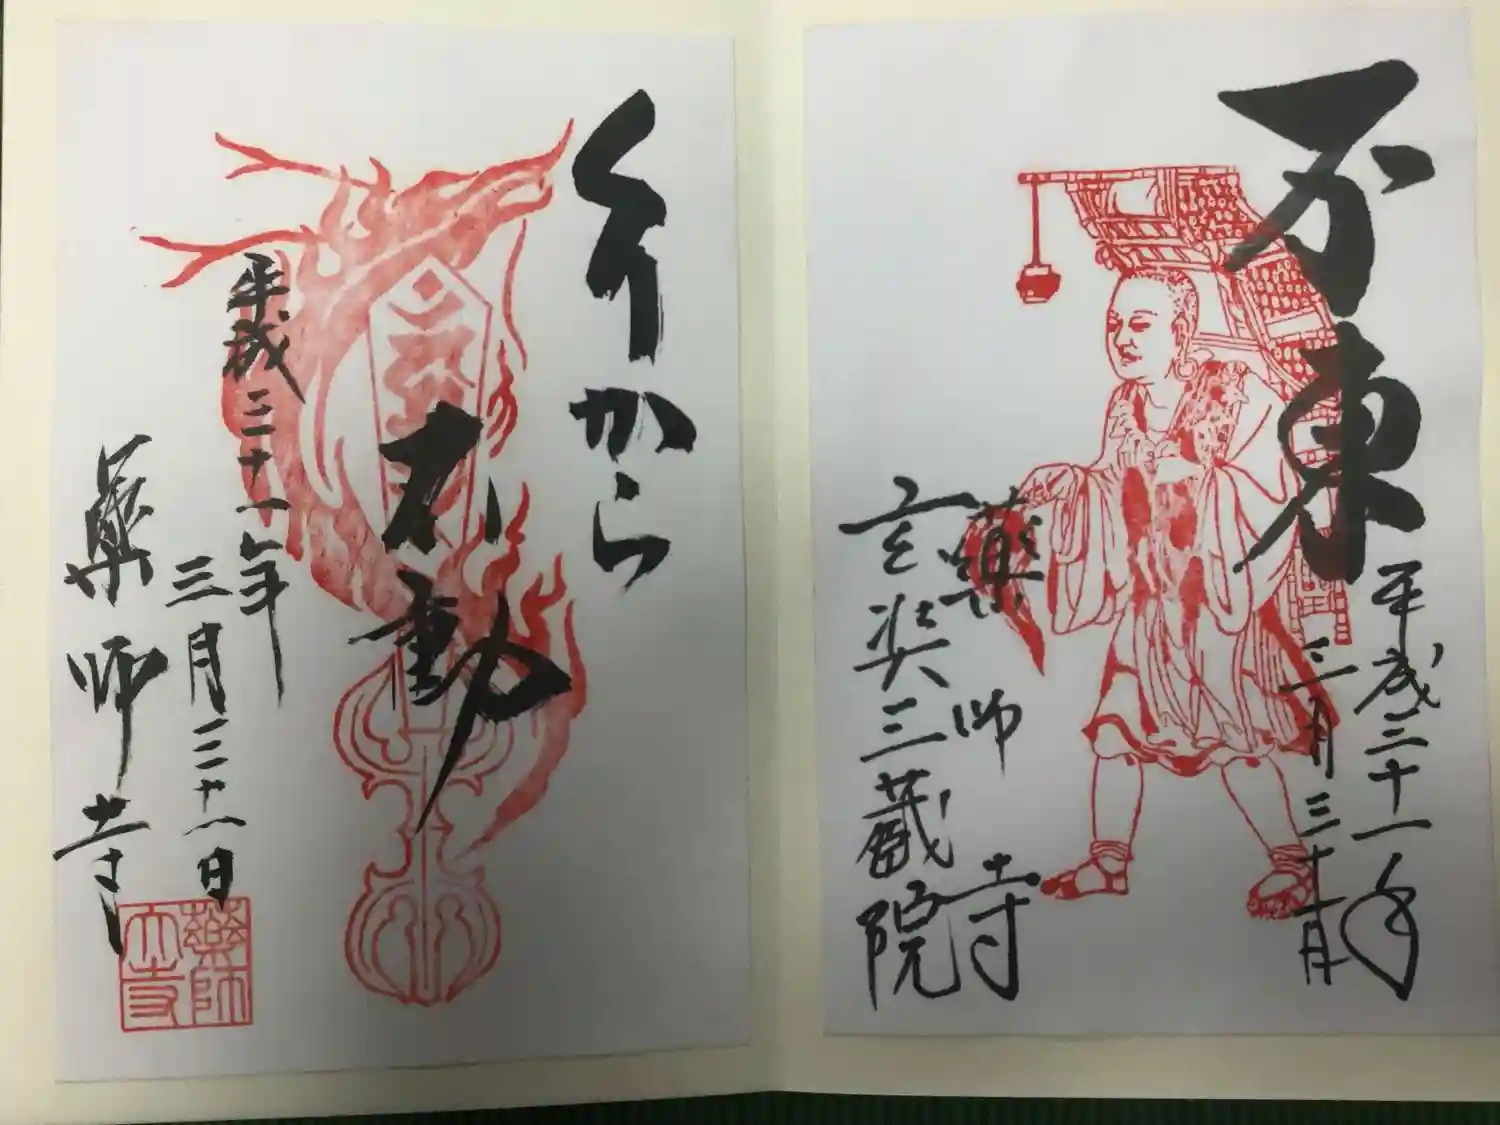 不東
平成三十一年
三月三十一日
藥師寺
玄奘三蔵院
くりから
不動
平成三十一年
三月
日
藥師寺